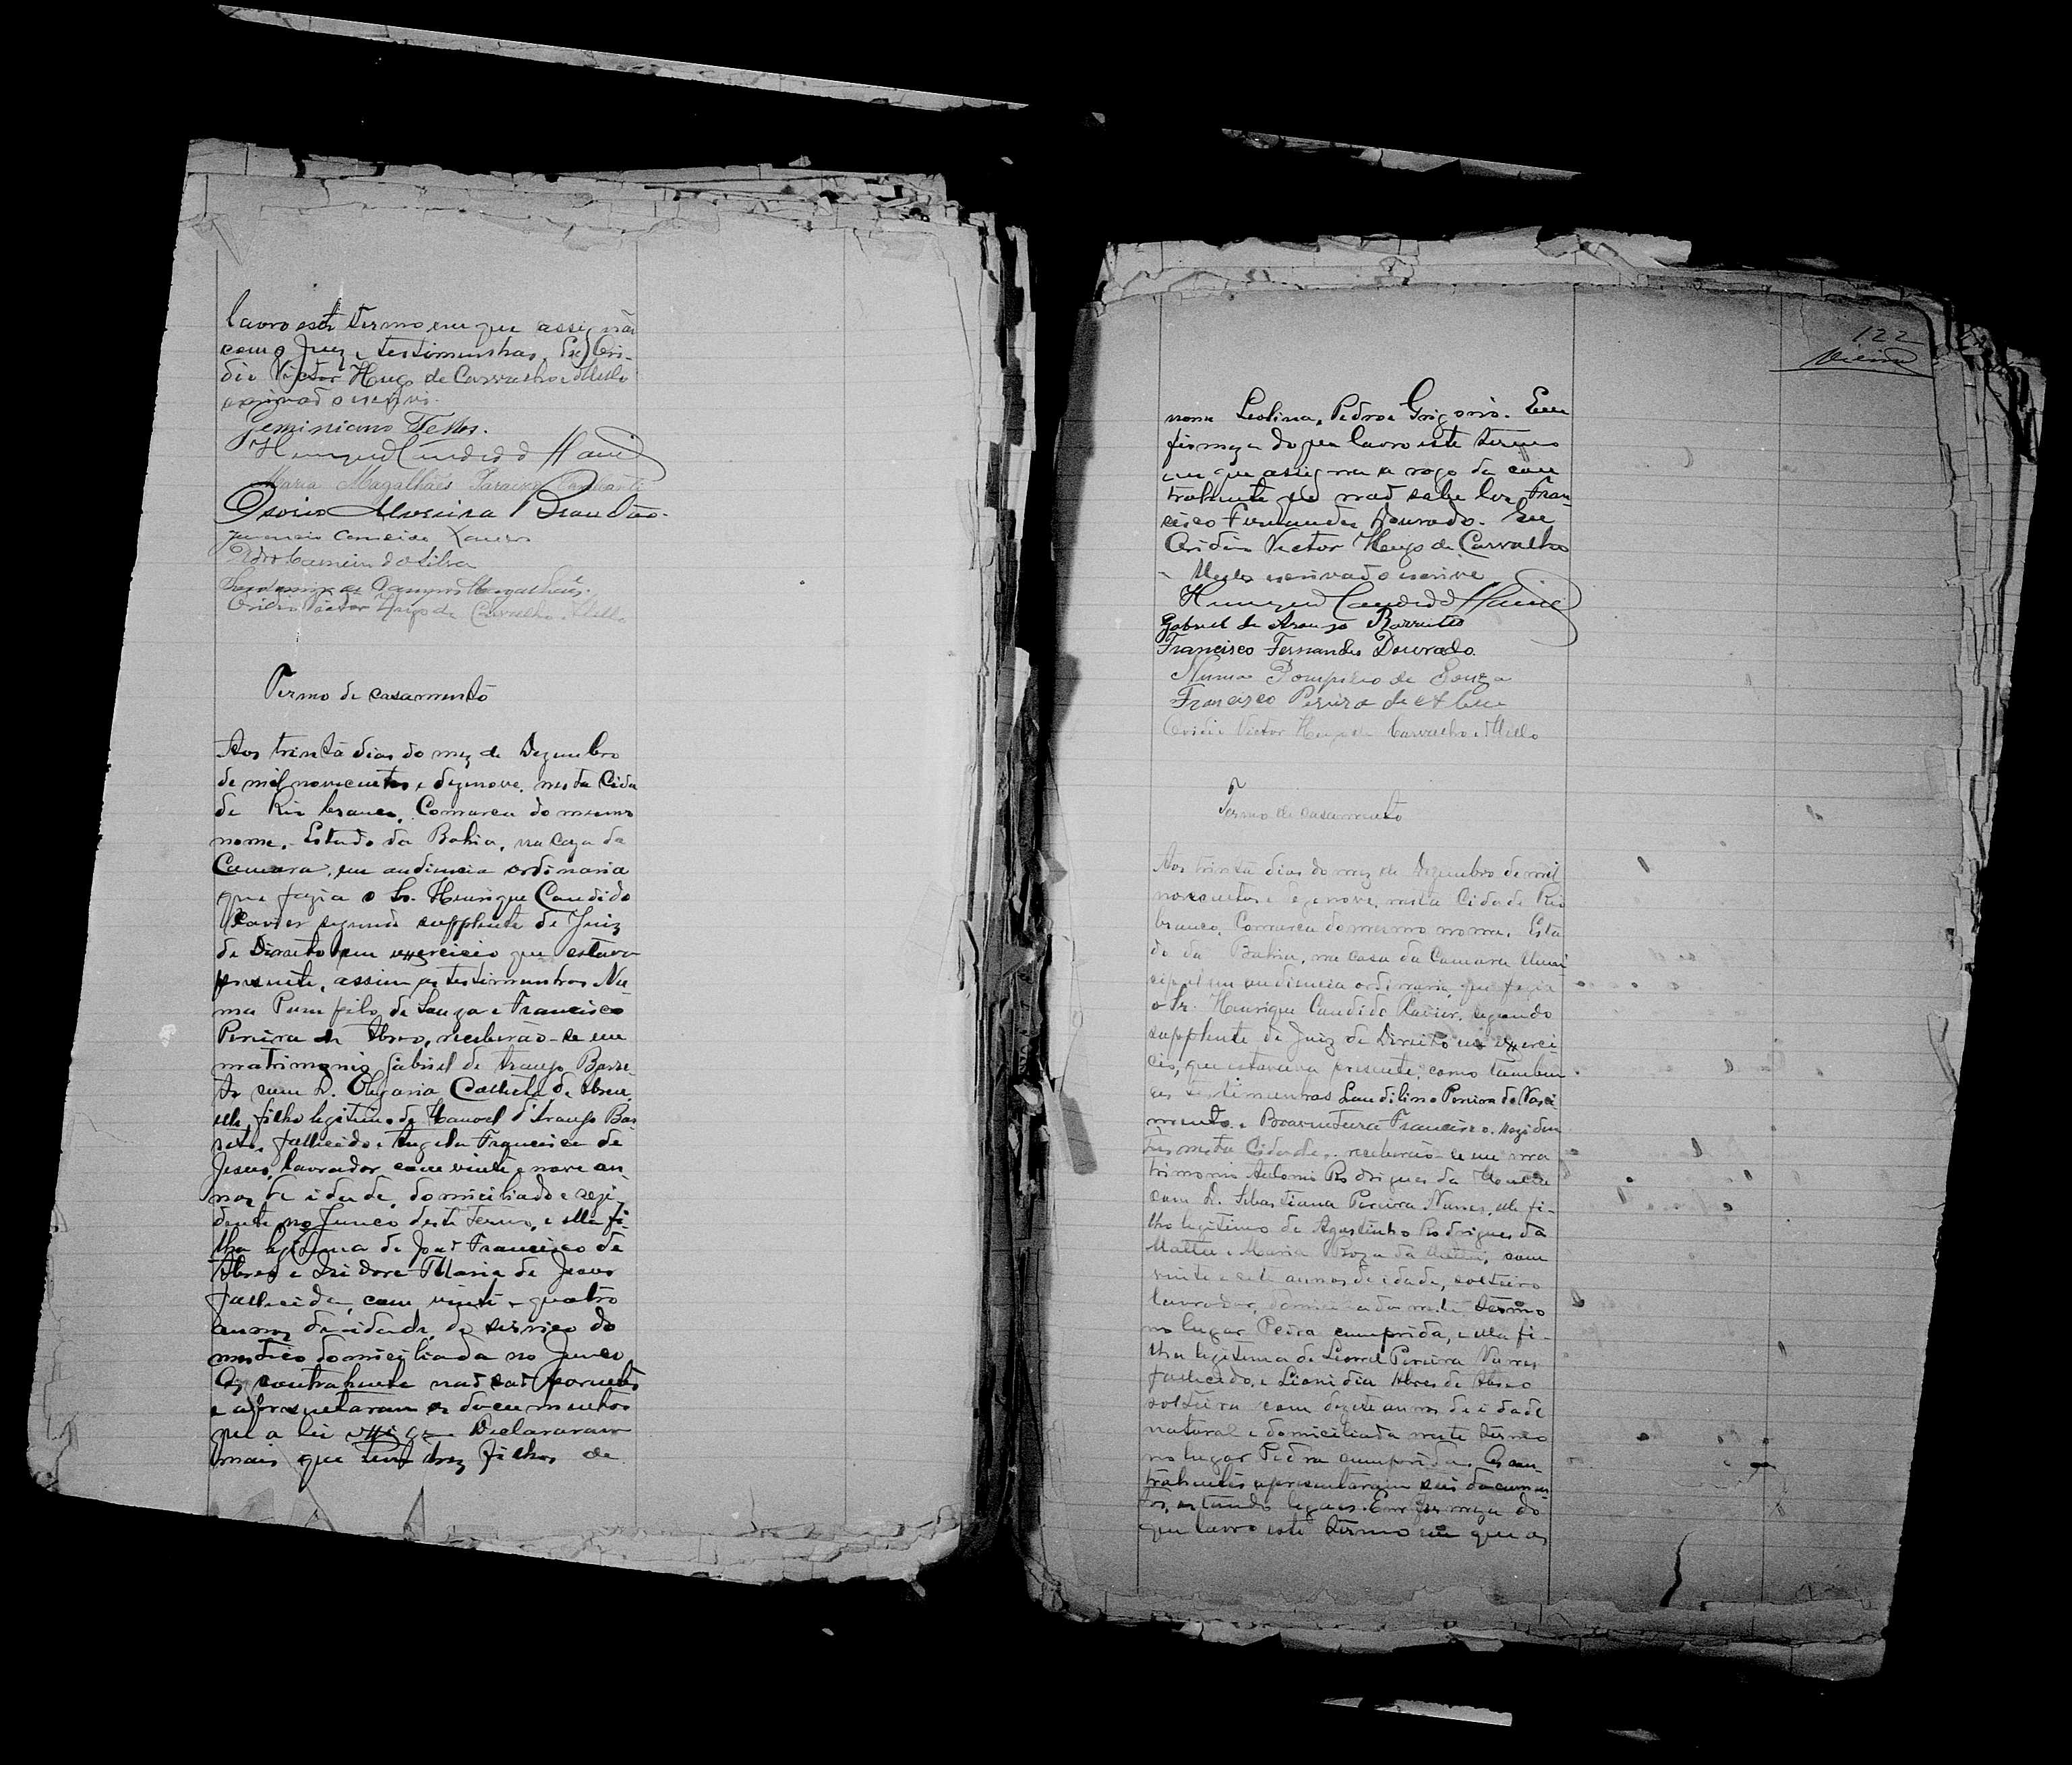 lavro este termo em que assignão
com o Juiz e testimunhas. Eu Ovi-
dio Victor Hugo de Carvalho e Mello
escrivão o escrevi.
Geminiano Telles.
Henrique Candido Xavier
Maria Magalhães
Osorio Moreira Brandão.
Xavier
Pedro Carneiro da Silva
de Campos Magalhães.
Ovidio Victor Hugo de Carvalho e Mello
Termo de casamento
Aos trinta dias do mez de Dezembro
de mil novecentos e dezenove, nesta Cida
de Rio branco, Comarca do mesmo
nome, Estado da Bahia, na caza da
Camara, em audiencia ordinaria
que fazia o Sr. Henrique Candido
Xavier segundo supplente de Juiz
de Direito em exercicio que estava
presente, assim as testimunhas Nu-
ma Pumpilo de Souza e Francisco
Pereira de Abreo, receberão-se em
matrimonio Gabriel de Araujo Barre-
to com D. Olegaria de Abreu,
elle filho legitimo de Manoel d'Araujo Bar
reto, fallecido e Angela Francisca de
Jesus, lavrador com vinte e nove an
nos de idade, domiciliado e rezi-
dente no Junco deste Termo, e ella fi-
lha legitima de João Francisco de
Abreo e Izidora Maria de Jesus
fallecida, com vinte e quatro
annos de idade, de serviço do
mestico domiciliada no Junco
Os contrahente não são parentes
e apresentaram os documentos
que a lei exige Declararam
mais que tem trez filhos de
122
nome Leolina, Pedro e Grigorio. Em
firmeza do que lavro este termo
em que assigna a rogo da con
trahente que não sabe ler Fran-
cisco Fernandes Dourado. Eu
Ovidio Victor Hugo de Carvalho
e Mello escrivão o escrive
Henrique Candido Xavier
Gabriel de Araujo Barretto
Francisco Fernandes Dourado.
Numa Pompilio de Souza
Francisco Pereira de Abreu
Ovidio Victor Hugo de Carvalho e Mello
Termo de casamento
Aos trinta dias do mez de Dezembro de mil
novecentos e dezenove, nesta Cidade Rio
branco, Comarca do mesmo nome, Esta
do da Bahia, na casa da Camara Muni-
cipal em audiencia ordinaria que fazia
o Sr. Henrique Candido Xavier, segundo
supplente de Juiz de Direito em exerci-
cio, que estava presente, como tambem
as testimunhas Laudilino Pereira do Nasci
mento e Boaventura Francisco, rezidem
tes nesta Cidade, receberão-se em ma
trimonio Antonio Rodrigues da
com D. Sebastiana Pereira Nunes, elle fi-
lho legitimo de Agostinho Rodrigues da
Matta e Maria Roza da com
vinte e sete annos de idade, solteiro
lavrador, domiciliado neste Termo
no lugar Pedra cumprida, e ella fi-
lha legitima de Leonel Pereira Nunes
fallecido, e Leonidia Alves de Abreo
solteira com dezete annos de idade
natural e domiciliada neste termo
no lugar Pedra cumprida. Os con-
trahentes apresentaram seus documen-
tos, estando legaes. Em firmeza do
que lavro este termo em que os